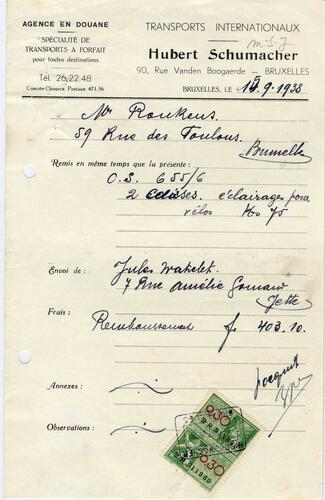 AGENCE EN DOUANE
SPÉCIALITÉ DE
TRANSPORTS A FORFAIT
pour toutes destinations
Tél. 26.22.48
Compte-Chèques Postaux 471.56
TRANSPORTS INTERNATIONAUX
Hubert Schumacher
90, Rue Vanden Boogaerde — BRUXELLES
BRUXELLES, LE 15.9.1938
Mr Roukens
59 Rue des Foulons
Bruxelles
Remis en même temps que la présente :
O.S. 655/6
2 caisses éclairages pour
vélos Ks 75
Envoi de : Jules Watelet
7 Rue Amélie Gomand
Jette
Frais : Remboursement fr 403.10.
Annexes :
Observations :
0.30
0.30